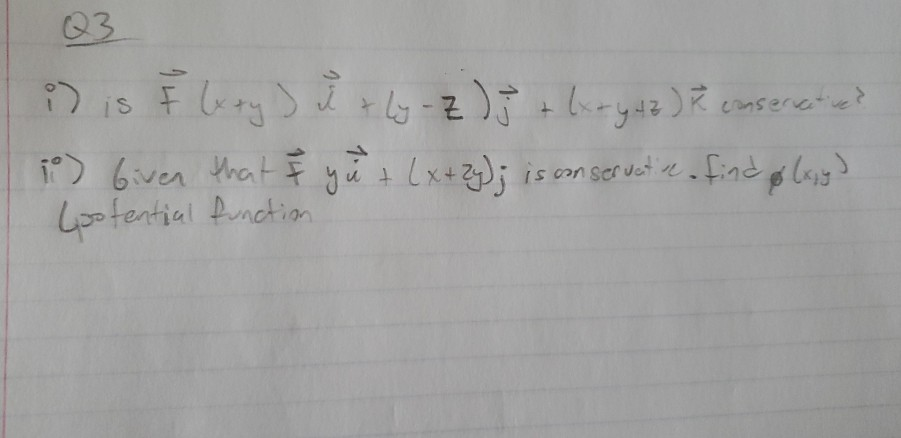 Q3
i) is F⃗ (x+y) i⃗ + (y - z) j⃗ + (x-y+z) k⃗ conservative?
ii) Given that F⃗ y i⃗ + (x+2y) j is conservative. find φ(x,y)
(potential function